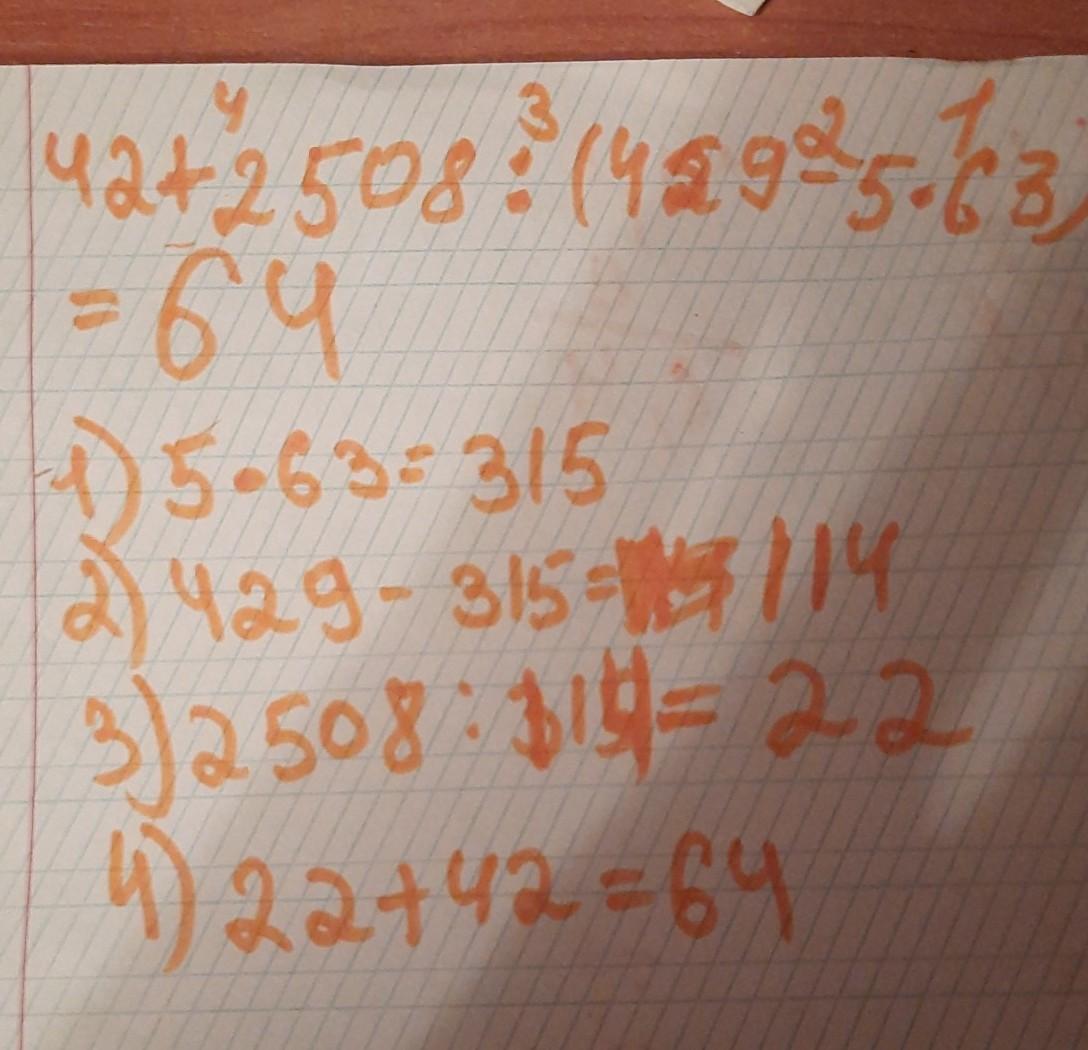 4 3 2 1
42+2508:(429-5·63)
= 64
1) 5·63=315
2) 429-315= 114
3) 2508: 114= 22
4) 22+42=64